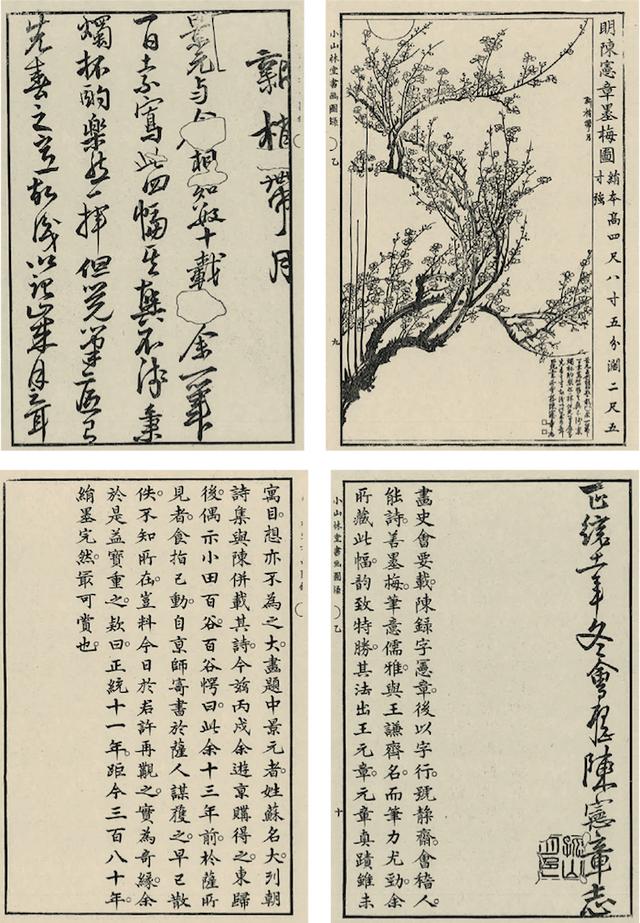 明陳憲章墨梅圖 絹本高四尺八寸五分濶二尺五
寸強
新梢帶月
小山林堂書画図録 乙
九
新梢帶月
景元与 相知數十載 余一筆
一日索寫此四幅其興不淺秉
燭杯酌樂然一揮但覺筆底已
先春之意 以記歲月云耳
正統十一年冬會稽陳憲章志
畫史會要載。陳録字憲章。後以字行。號靜齋。會稽人。
能詩。善墨梅。筆意儒雅。與王謙齊名。而筆力尤勁。余
所藏此幅。韵致特勝。其法出王元章。元章真蹟雖未
小山林堂書画図録 乙
十
寓目。想亦不為之。大畫題中景元者。姓蘇名大。列朝
詩集與陳併載其詩。今茲丙戌。余遊京購得之。東歸
後。偶示小田百谷。百谷愕曰。此余十三年前。於薩所
見者。食指已動。自京師寄書於薩人謀獲之。早已散
佚。不知所在。豈料今日於君許再觀之。實為奇緣。余
於是益寶重之。款曰。正統十一年。距今三百八十年。
絹墨完然。最可賞也。